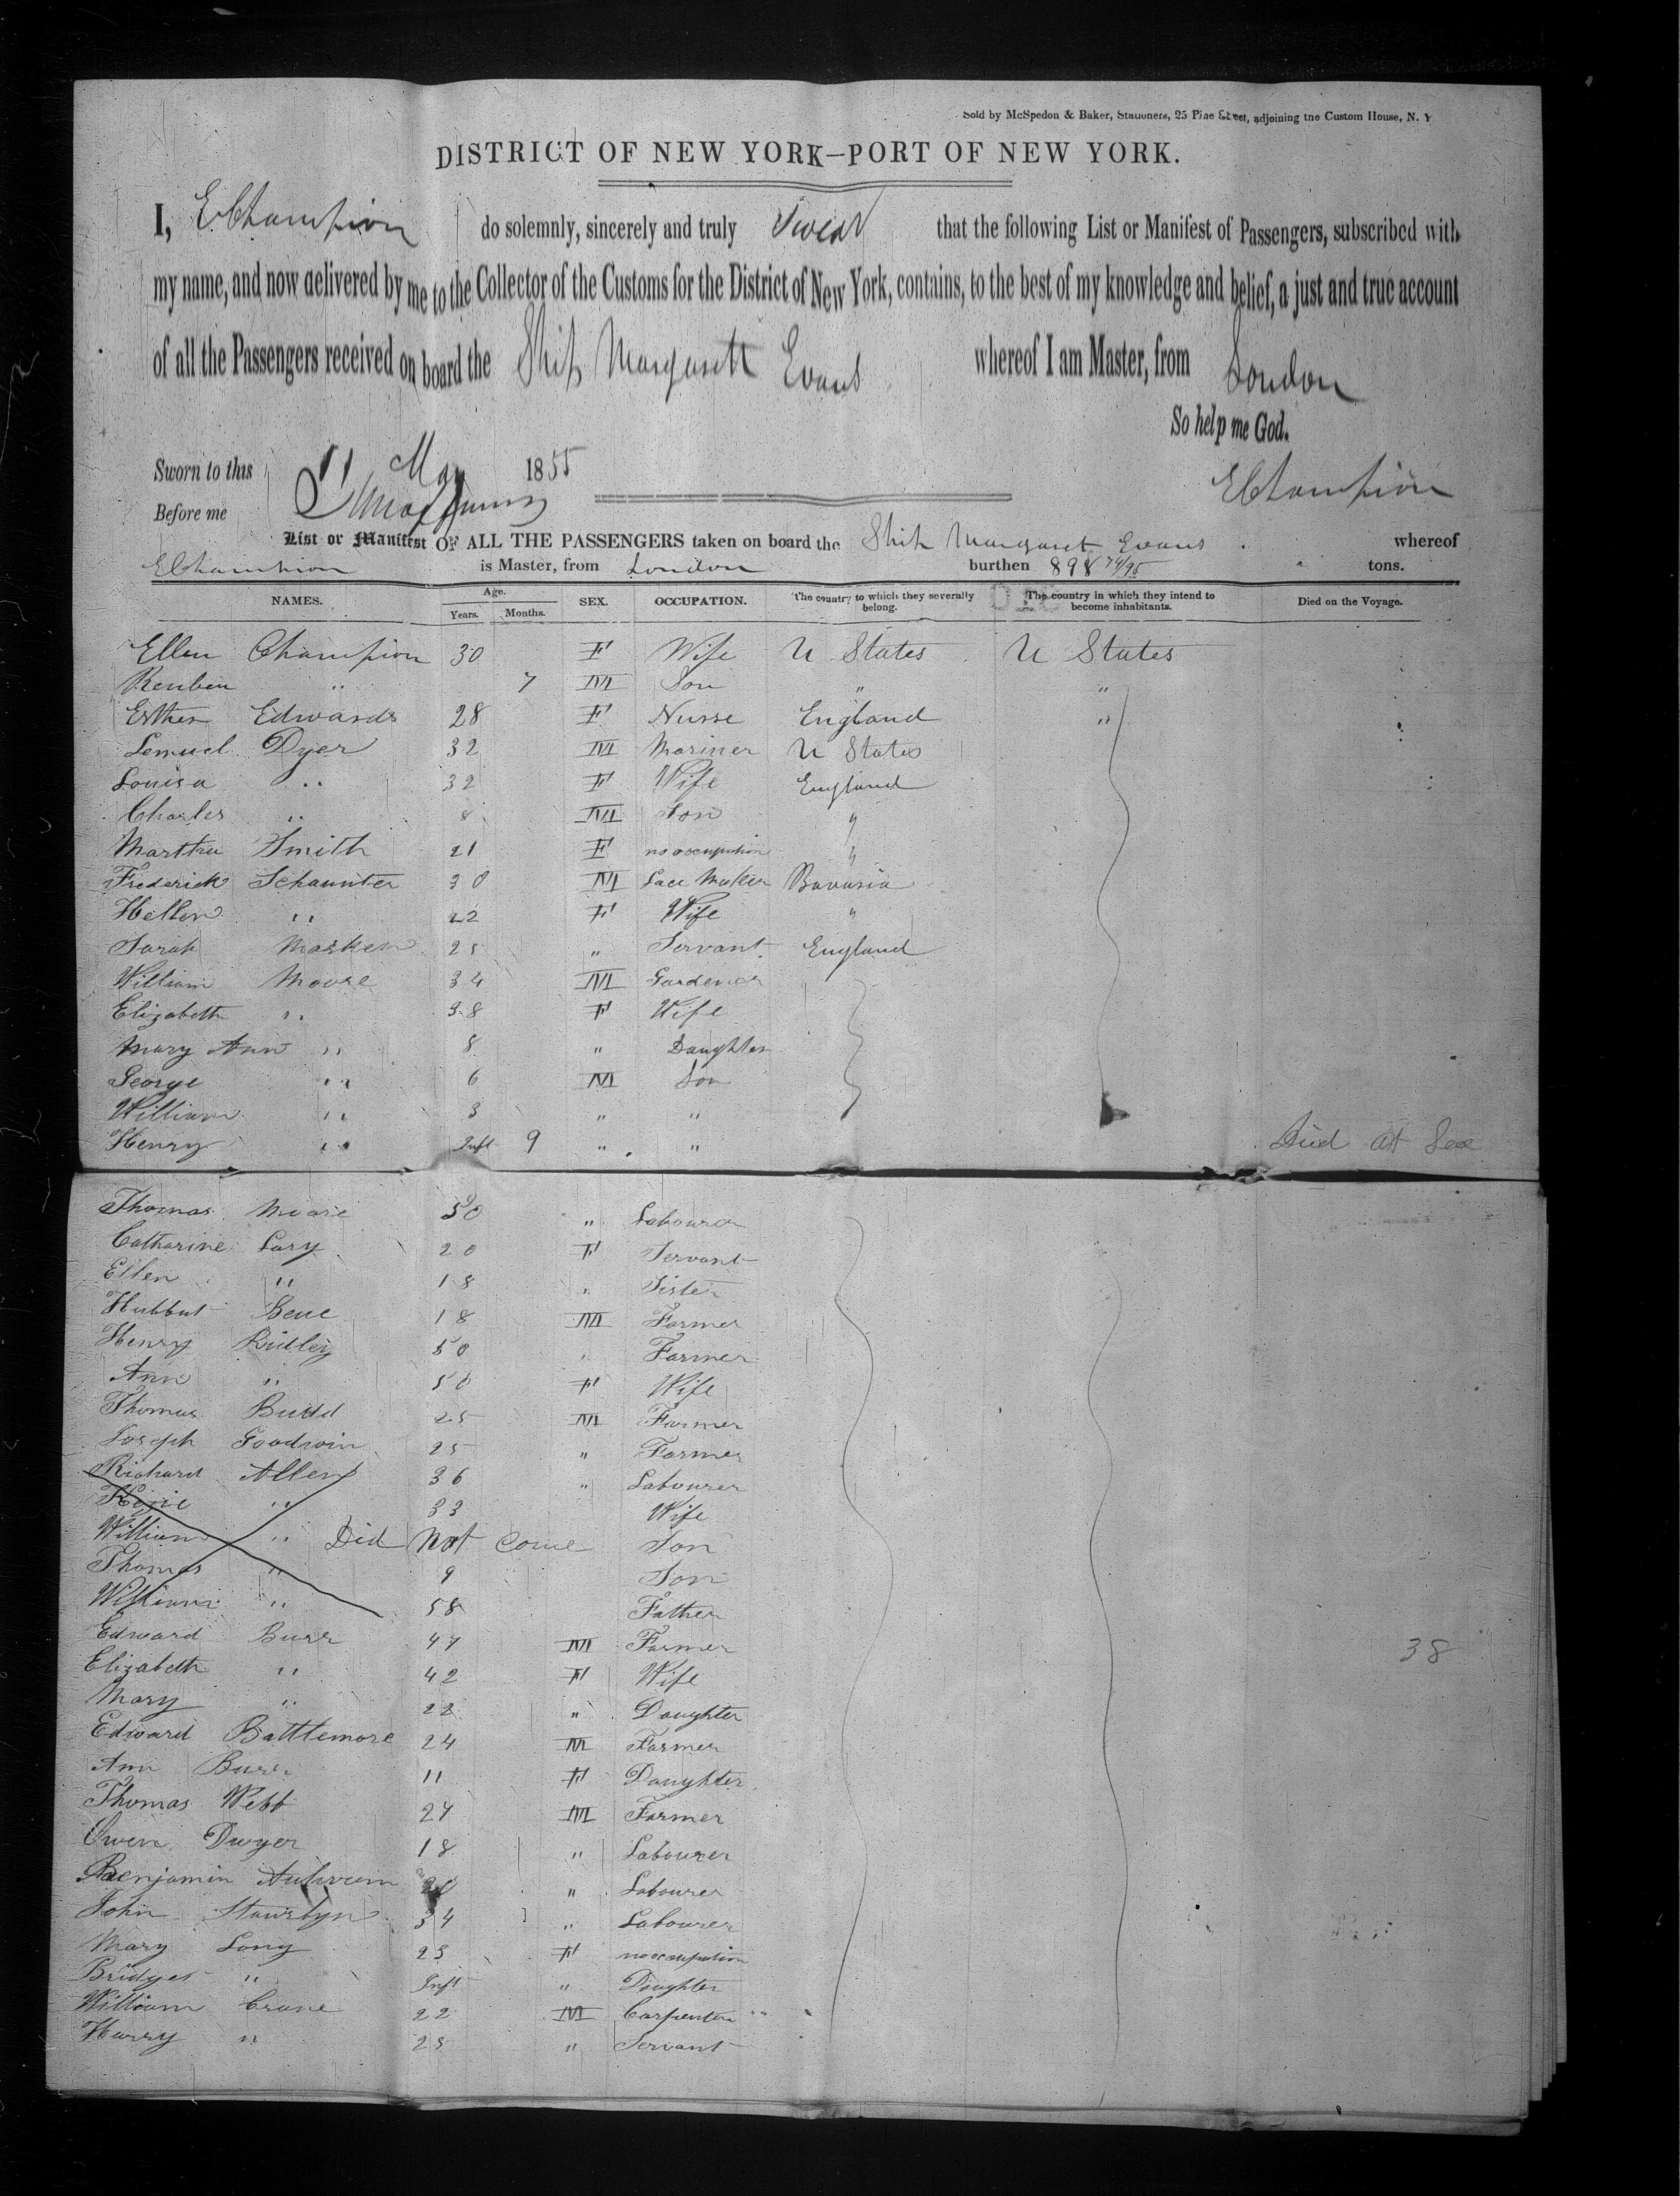 Sold by McSpedon & Baker, Stationers, 25 Pine Street, adjoining the Custom House, N. Y
DISTRICT OF NEW YORK—PORT OF NEW YORK.
I, E Champion do solemnly, sincerely and truly Swear that the following List or Manifest of Passengers, subscribed with
my name, and now delivered by me to the Collector of the Customs for the District of New York, contains, to the best of my knowledge and belief, a just and true account
of all the Passengers received on board the Ship Margarett Evans whereof I am Master, from London
So help me God.
Sworn to this May 1855 E Champion
Before me
List or Manifest OF ALL THE PASSENGERS taken on board the Ship Margaret Evans whereof
E Champion is Master, from London burthen 898 74/95 tons.
NAMES. Age. Years. Months. SEX. OCCUPATION. The country to which they severally belong. The country in which they intend to become inhabitants. Died on the Voyage.
Ellen Champion 30 F Wife U States U States
Reuben " 7 M Son " "
Esther Edwards 28 F Nurse England "
Lemuel Dyer 32 M Mariner U States
Louisa " 32 F Wife England
Charles " 8 M Son "
Martha Smith 21 F no occupation "
Frederick Schaunter 30 M Lace Maker Bavaria
Hellen " 22 F Wife "
Sarah 25 " Servant England
William Moore 34 M Gardener
Elizabeth " 38 F Wife
Mary Ann " 8 " Daughter
George " 6 M Son
William " 3 " "
Henry " Inft 9 " " Died at Sea
Thomas Moore 50 " Labourer
Catharine Lary 20 F Servant
Ellen " 18 " Sister
18 M Farmer
Henry Ridley 50 " Farmer
Ann " 50 F Wife
Thomas Budd 25 M Farmer
Joseph Goodwin 25 " Farmer
Richard Allen 36 " Labourer
" 33 Wife
William " Did Not Come Son
Thomas " 9 Son
William " 58 Father
Edward Burr 47 M Farmer 38
Elizabeth " 42 F Wife
Mary " 22 " Daughter
Edward Battlemore 24 M Farmer
Ann Burr 11 F Daughter
Thomas Webb 27 M Farmer
Owen Dwyer 18 " Labourer
Benjamin 20 " Labourer
John 34 " Labourer
Mary Long 23 F no occupation
Bridget " Inft " Daughter
William Crane 22 M Carpenter "
Harry " 25 " Servant